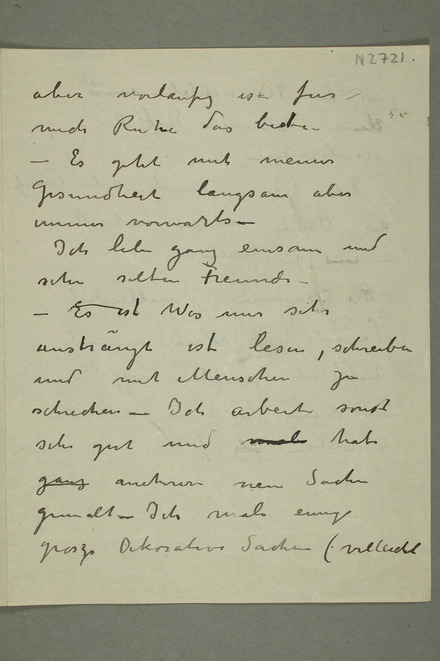 N 2721.
aber vorläufig ist für
mich Ruhe das beste –
– Es geht mit meiner
Gesundheit langsam aber
immer vorwarts –
Ich lebe ganz einsam und
sehe selten Freunde –
– Es ist Was mir sehr
anstrãngt ist lesen, schreiben
und mit Menschen zu
schrechen – Ich arbeite sonst
sehr gut und male habe
ganz mehrere neue Sachen
gemalt – Ich male einige
grosze Dekorative Sachen (villeicht